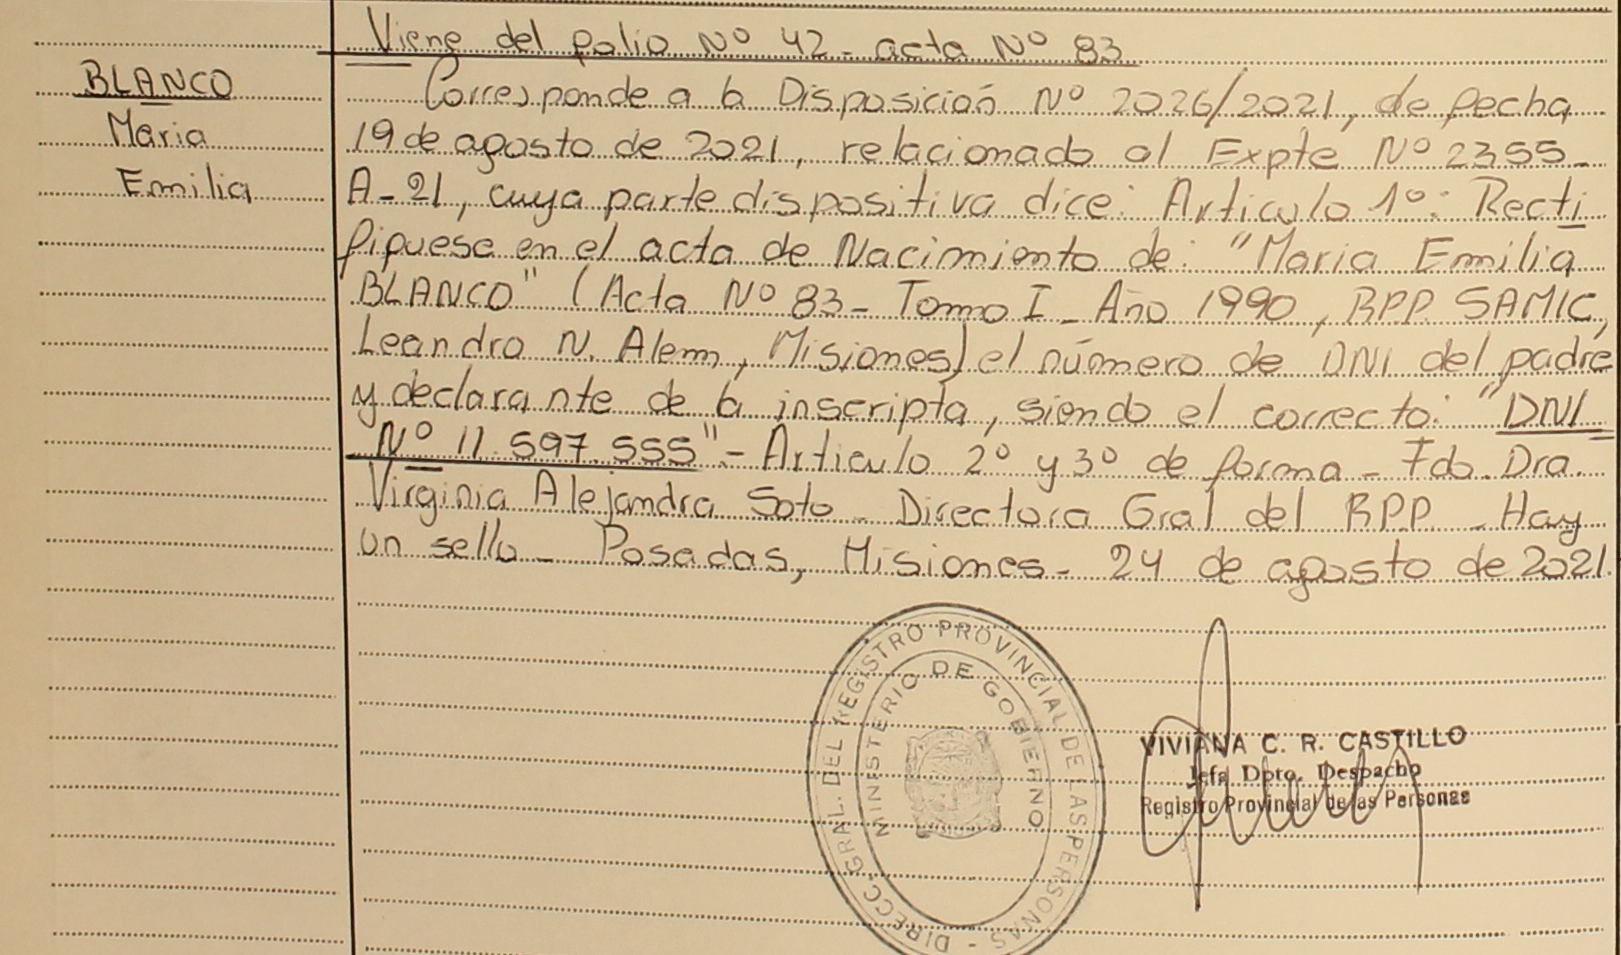 Viene del folio Nº 42 - acta Nº 83
BLANCO
Maria
Emilia
Corresponde a la Disposición Nº 2026/2021, de fecha
19 de agosto de 2021, relacionado al Expte Nº 2355-
A-21, cuya parte dispositiva dice: Articulo 1º: Recti
fiquese en el acta de Nacimiento de: "Maria Emilia
BLANCO" (Acta Nº 83 - Tomo I - Año 1990, RPP. SAMIC,
Leandro N. Alem, Misiones) el número de DNI del padre
y declarante de la inscripta, siendo el correcto: "DNI
Nº 11.597.555" - Articulo 2º y 3º de forma - Fdo. Dra.
Virginia Alejandra Soto - Directora Gral del RPP - Hay
un sello - Posadas, Misiones - 24 de agosto de 2021.
DIRECC. GRAL. DEL REGISTRO PROVINCIAL DE LAS PERSONAS -
MINISTERIO DE GOBIERNO
VIVIANA C. R. CASTILLO
Jefa Dpto. Despacho
Registro Provincial de las Personas